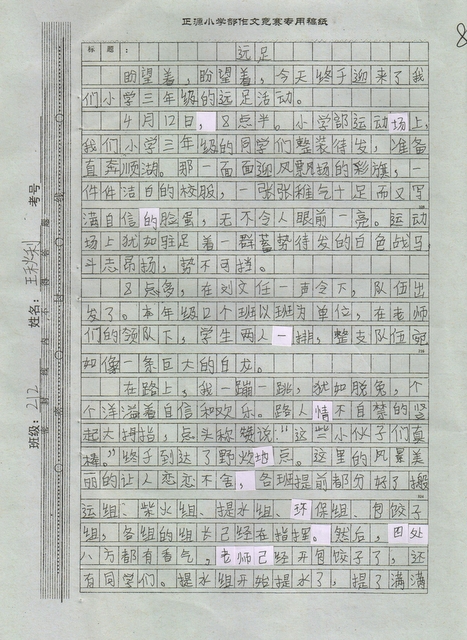 正源小学部作文竞赛专用稿纸
8
标题：
远足
盼望着，盼望着，今天终于迎来了我
们小学三年级的远足活动。
4月12日，8点半。小学部运动场上，
我们小学三年级的同学们整装待发，准备
直奔顺湖。那一面面迎风飘扬的彩旗，一
件件洁白的校服，一张张稚气十足而又写
满自信的脸蛋，无不令人眼前一亮。运动
场上犹如驻足着一群蓄势待发的白色战马
斗志昂扬，势不可挡。
8点多，在刘文任一声令下，队伍出
发了。本年级12个班以班为单位，在老师
们的领队下，学生两人一排，整支队伍宛
如像一条巨大的白龙。
在路上，我一蹦一跳，犹如脱兔，个
个洋溢着自信和欢乐。路人情不自禁的竖
起大拇指，点头称赞说：“这些小伙子们真
棒。”终于到达了野炊地点。这里的风景美
丽的让人恋恋不舍，各班提前都分好了搬
运组、柴火组、提水组、环保组、包饺子
组，各组的组长已经在指挥。然后，四处
八方都有香气，老师已经开包饺子了，还
有同学们。提水组开始提水了，提了满满
考号
姓名：
班级：212